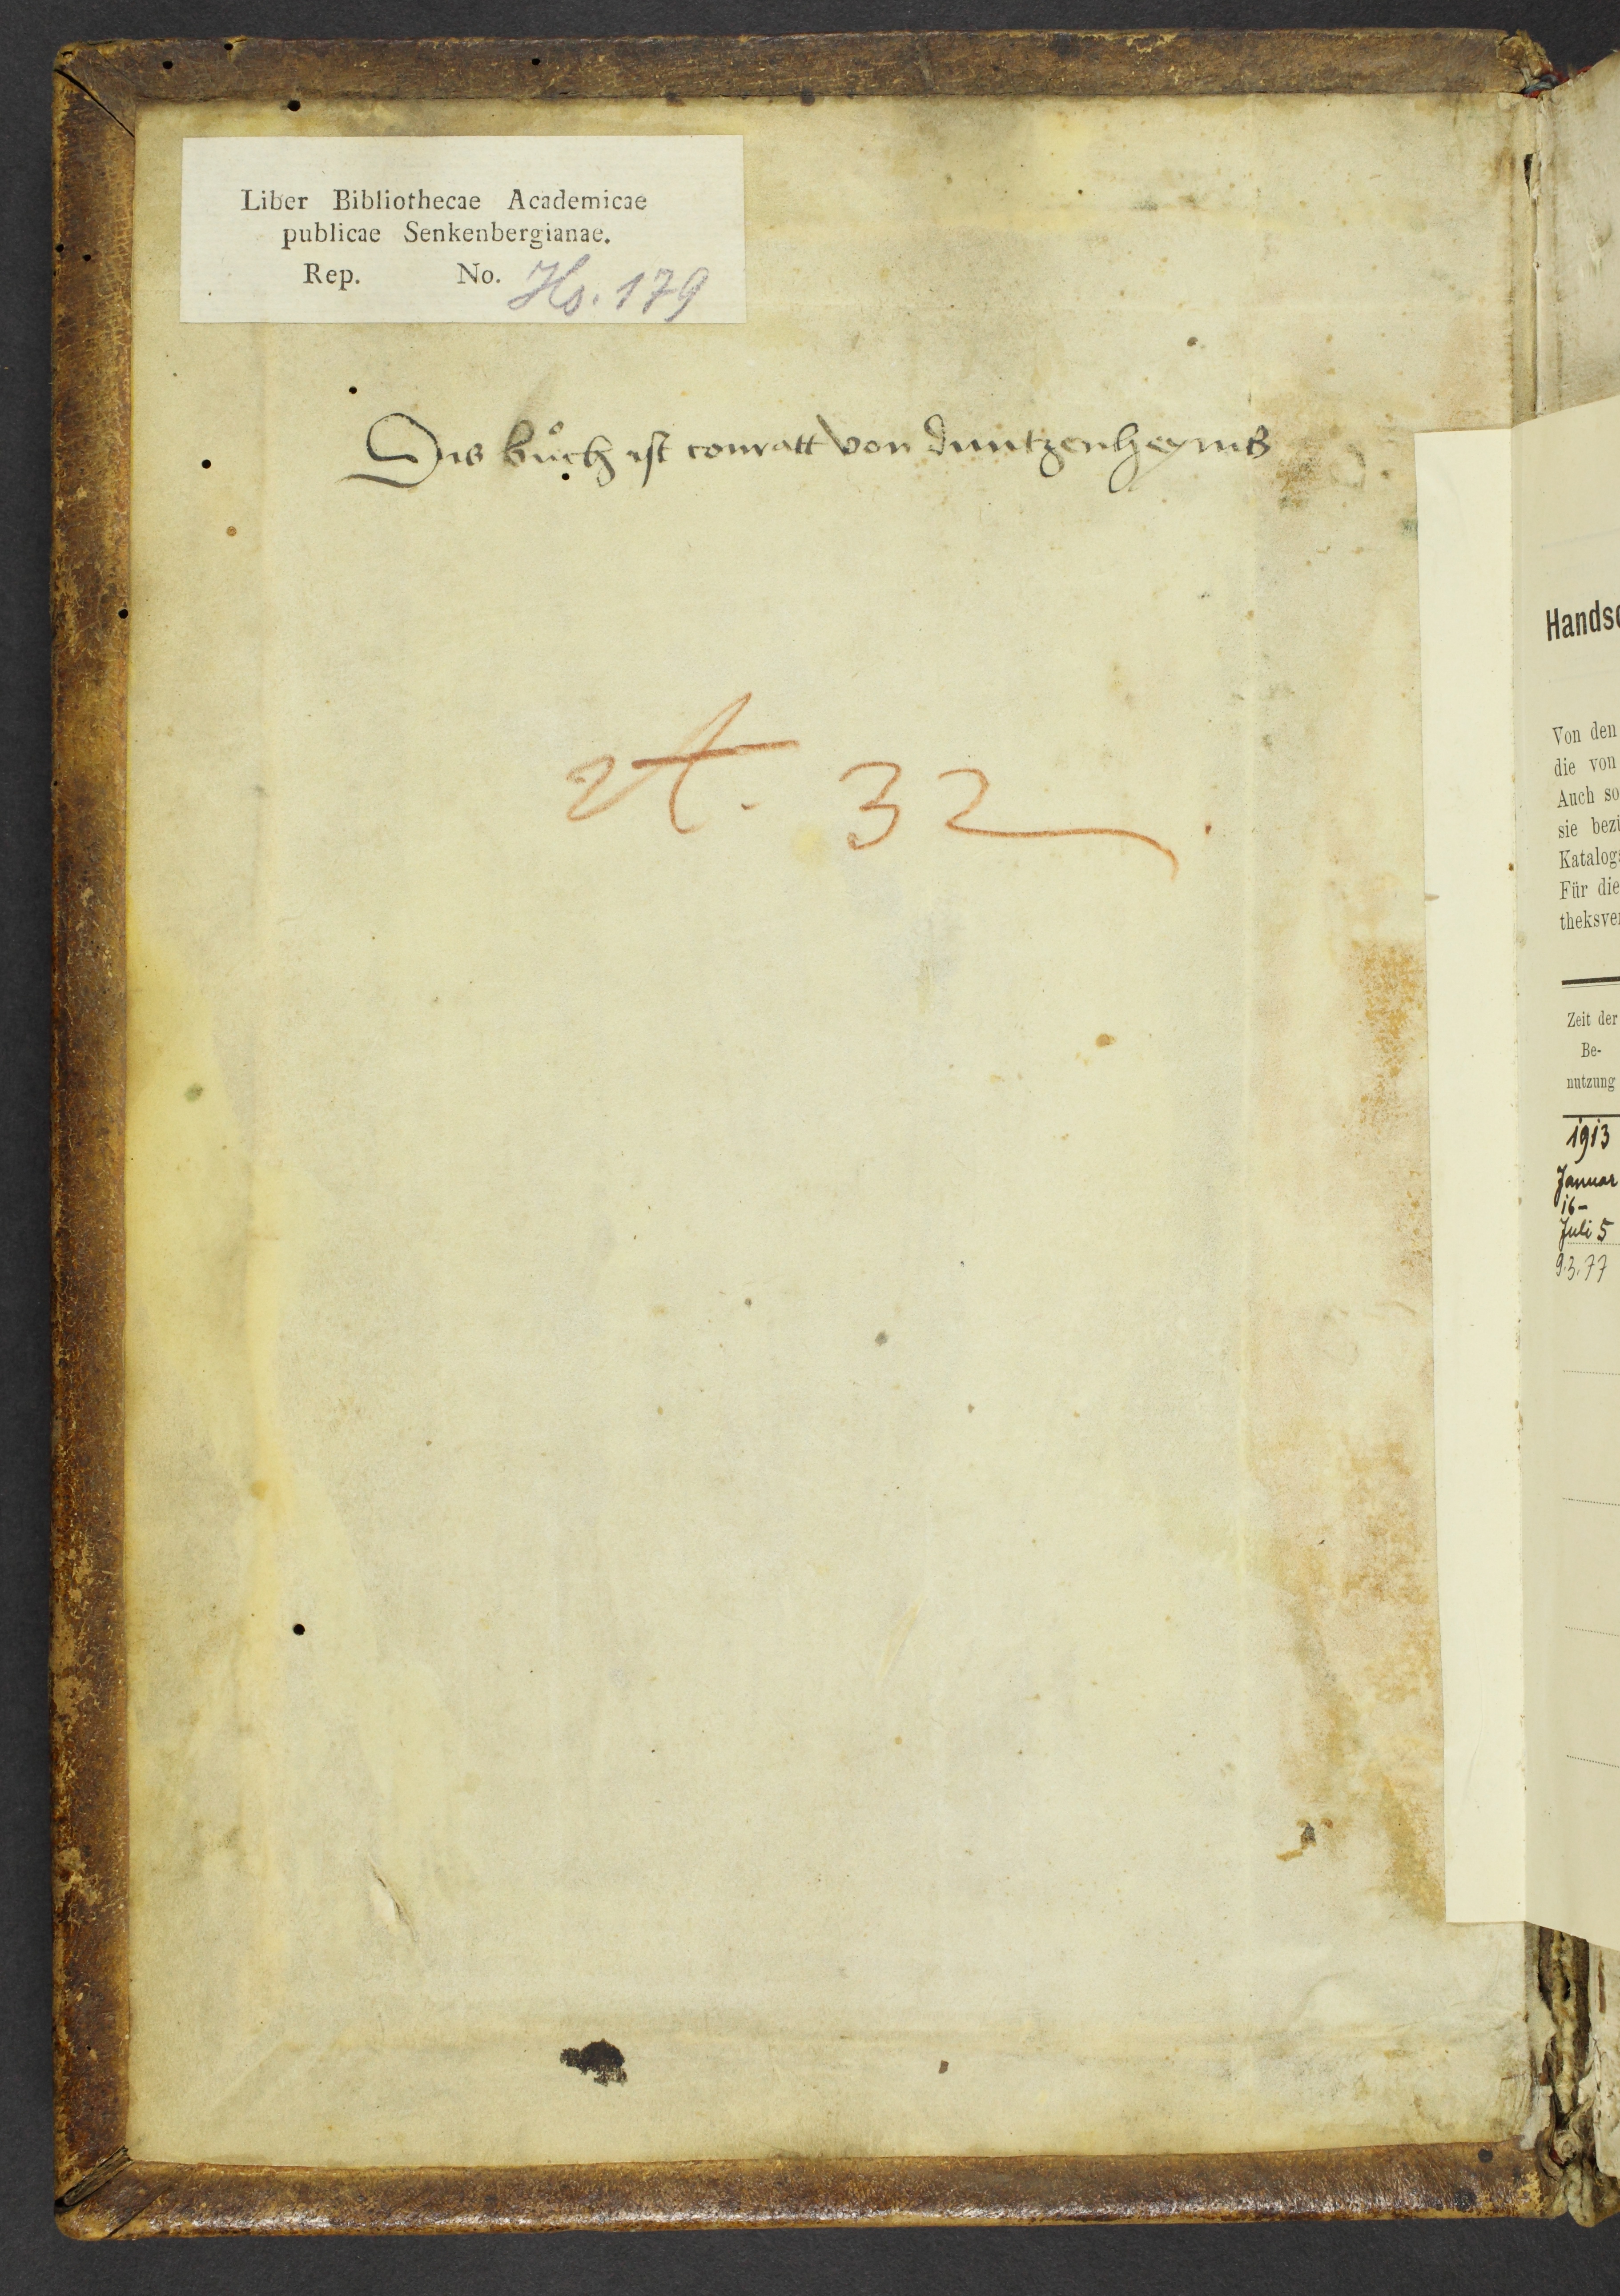 Liber Bibliothecae Academicae
publicae Senkenbergianae.
Rep. No. Hs. 179
Dis bůch ist conratt von duntzenheyms
A. 32
Handsc
Von den
die von
Auch so
sie bezü
Katalogs
Für die
theksver
Zeit der
Be-
nutzung
1913
Januar
16-
Juli 5
9.3.77